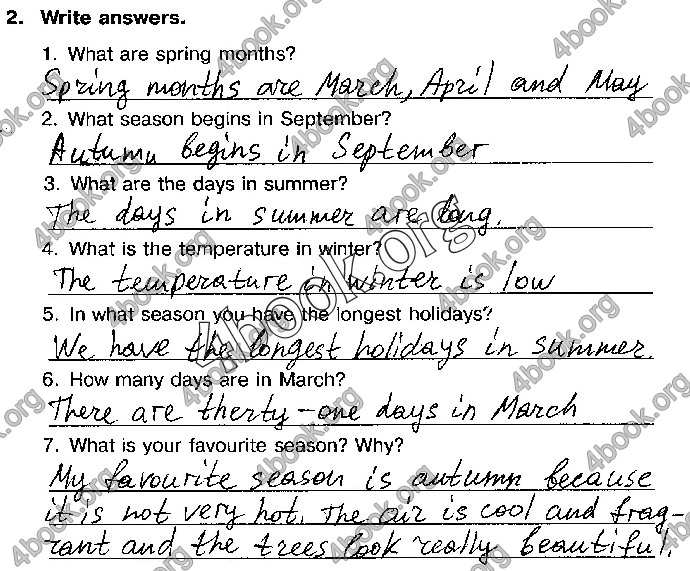 2. Write answers.
1. What are spring months?
Spring months are March, April and May
2. What season begins in September?
Autumn begins in September
3. What are the days in summer?
The days in summer are long.
4. What is the temperature in winter?
The temperature in winter is low
5. In what season you have the longest holidays?
We have the longest holidays in summer.
6. How many days are in March?
There are therty-one days in March
7. What is your favourite season? Why?
My favourite season is autumn because
it is not very hot. The air is cool and frag-
rant and the trees look really beautiful.
4book.org